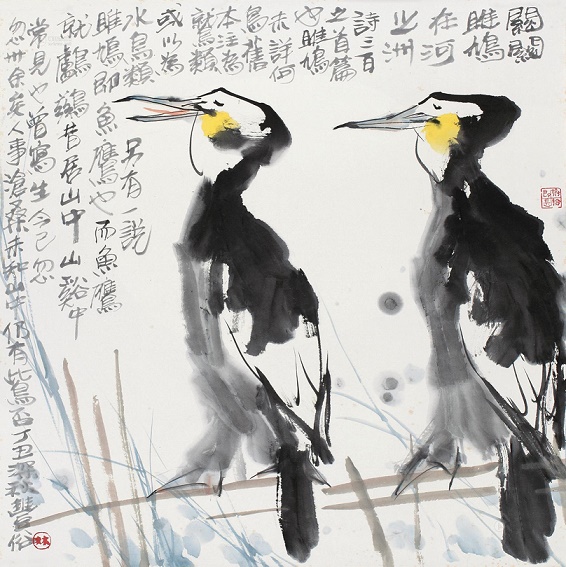 關關
雎鳩
在河
之洲
詩三百
之首篇
也雎鳩
未詳何
鳥舊
本注為
鷲類
或以為
水鳥類 另有一說
雎鳩即魚鷹也而魚鷹
就鸕鶿昔居山中山谿中
常見也曾寫生今已忽
忽卅余矣人事滄桑未知山中仍有此鳥否丁丑深秋